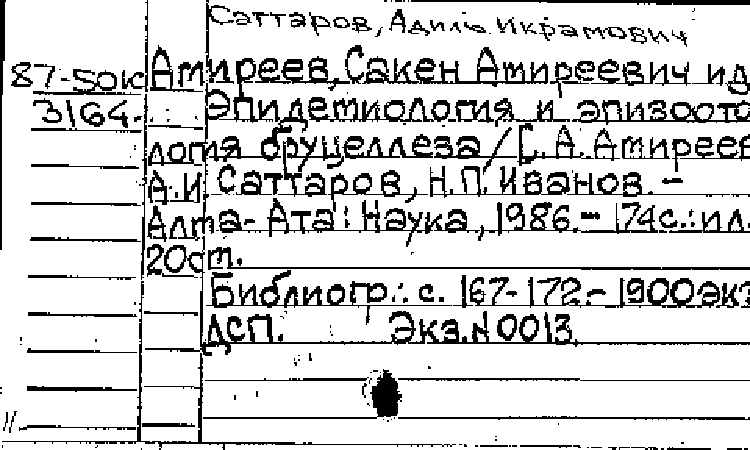 Саттаров, Адиль Икрамович
87-50к Амиреев, Сакен Амиреевич и д
3164. Эпидемиология и эпизоото
логия бруцеллеза / С.А. Амиреев
А.И. Саттаров, Н.П. Иванов. –
Алма-Ата: Наука, 1986. – 174с.: ил.
20см.
Библиогр.: с. 167-172. – 1900 экз
ДСП. Экз. N 0013.